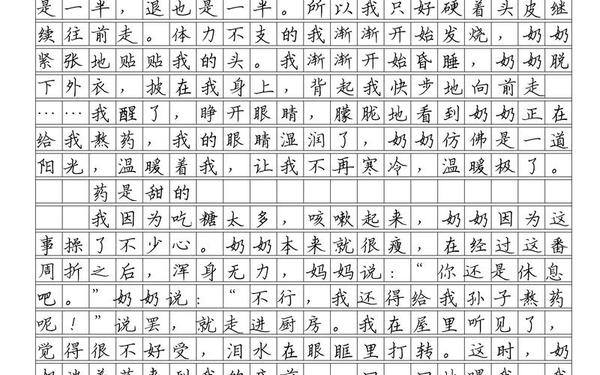 是一半，退也是一半。所以我只好硬着头皮继
续往前走。体力不支的我渐渐开始发烧，奶奶
紧张地贴贴我的头。我渐渐开始昏睡，奶奶脱
下外衣，披在我身上，背起我快步地向前走
……我醒了，睁开眼睛，朦胧地看到奶奶正在
给我熬药，我的眼睛湿润了，奶奶仿佛是一道
阳光，温暖着我，让我不再寒冷，温暖极了。
药是甜的
我因为吃糖太多，咳嗽起来，奶奶因为这
事操了不少心。奶奶本来就很瘦，在经过这番
周折之后，浑身无力，妈妈说：“你还是休息
吧。”奶奶说：“不行，我还得给我孙子熬药
呢！”说罢，就走进厨房。我在屋里听见了，
觉得很不好受，泪水在眼眶里打转。这时，奶